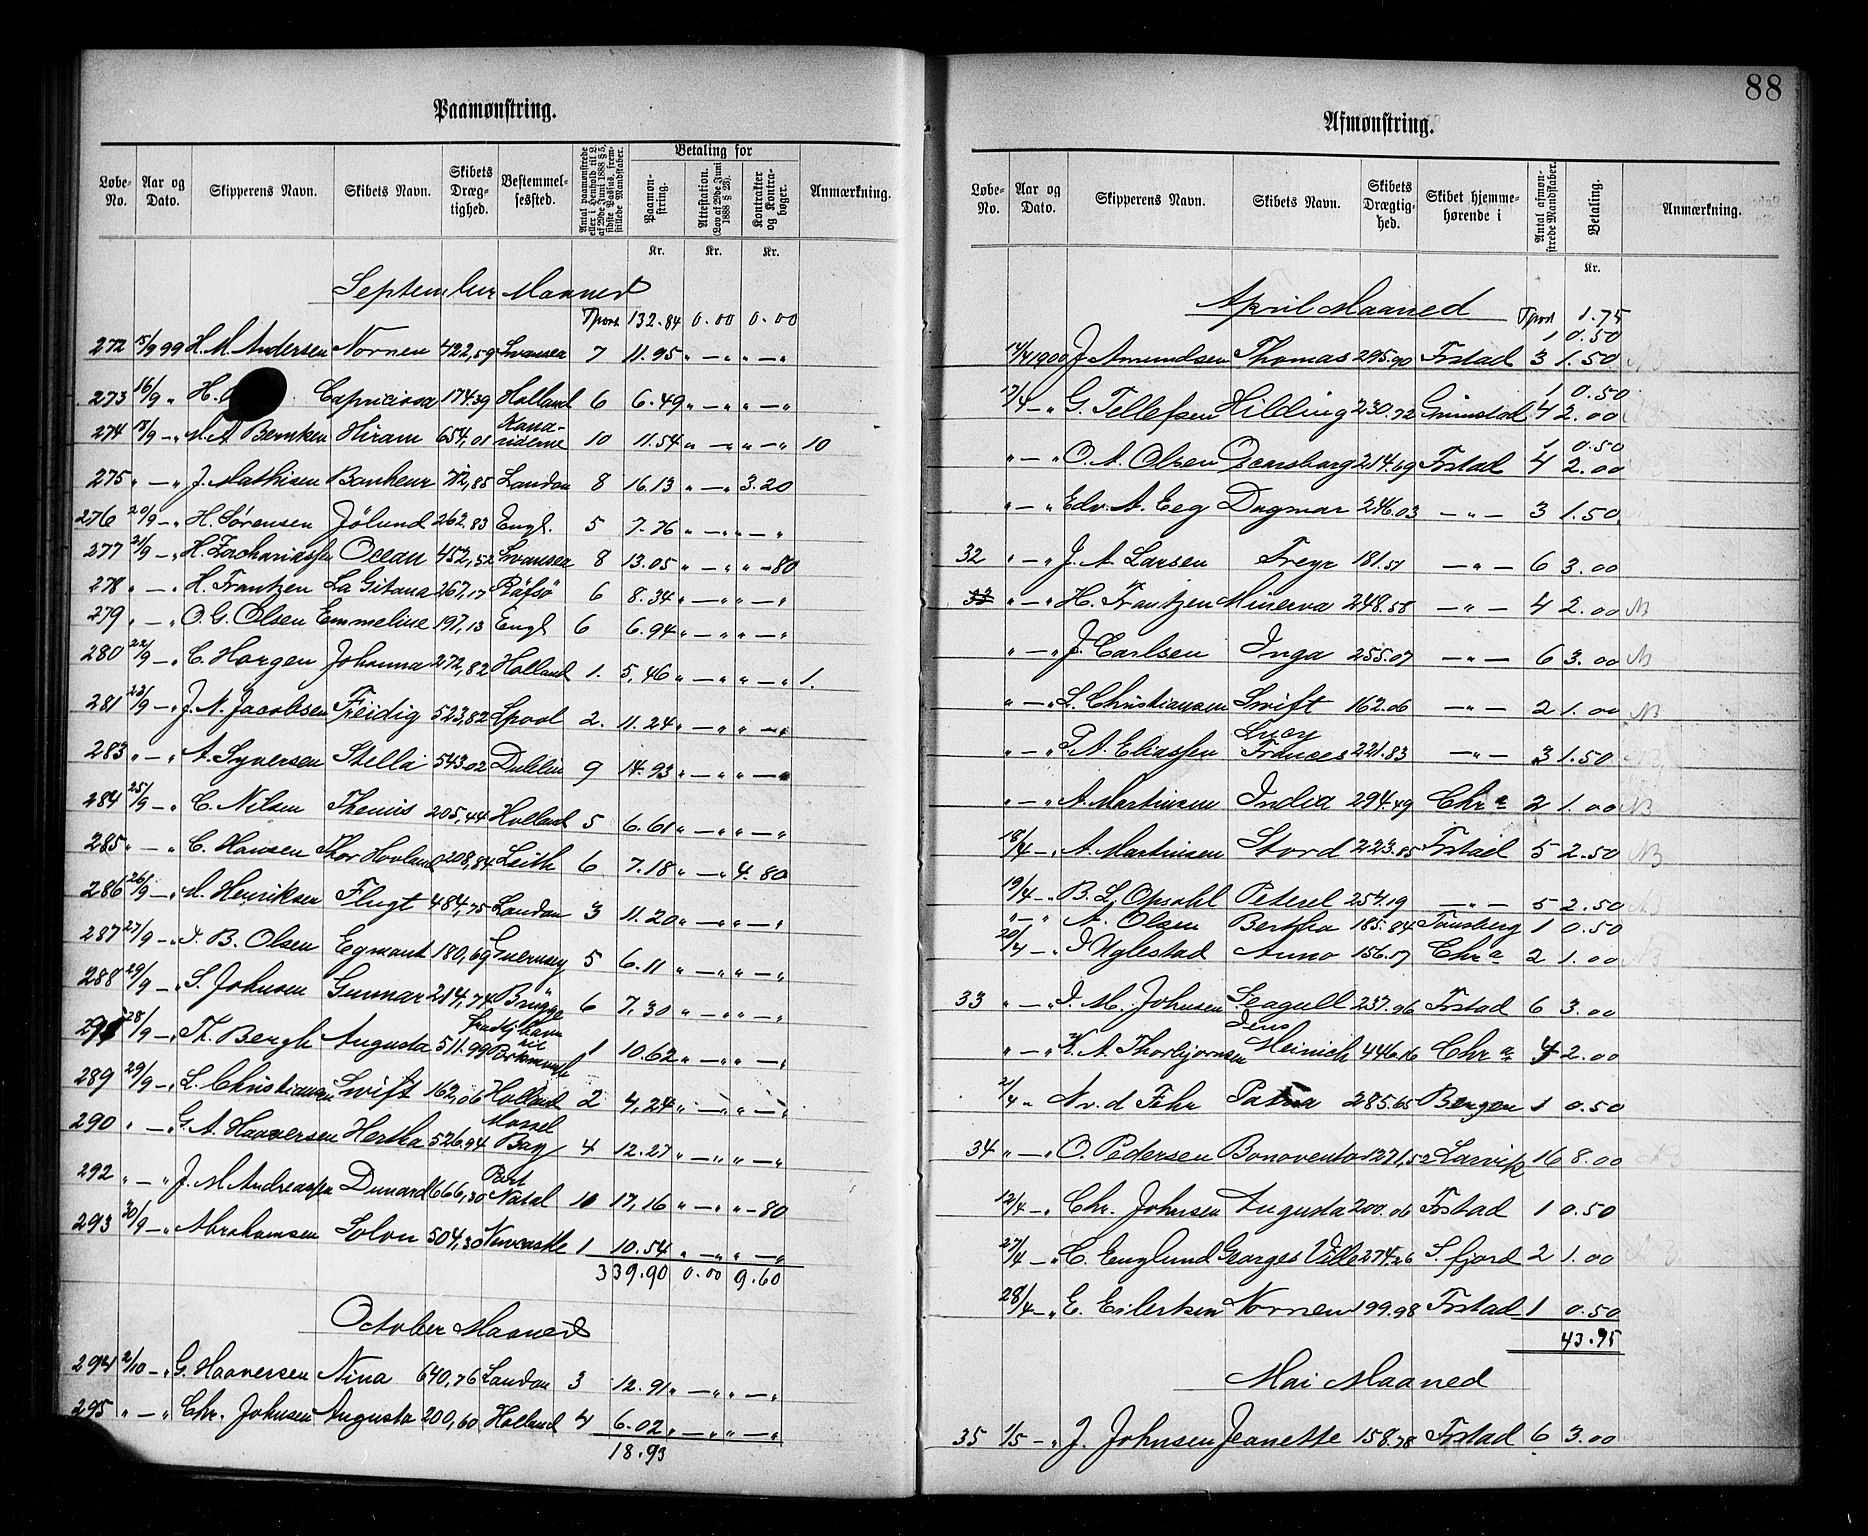 88
Paamønstring.
Løbe-No. Aar og Dato. Skipperens Navn. Skibets Navn. Skibets Dræg-tighed. Bestemmel-sessted. Antal paamønstrede eller i Henhold til L. af 29de Juni 1888 § 5, sidste Passus, frem-stillede Mandskaber. Betaling for Paamøn-string. Attestation. (Lov af 29de Juni 1888 § 28). Kontrakter og Kontra-bøger. Anmærkning.
Kr. Kr. Kr.
September Maaned
Tport 132.84 0.00 0.00
272 15/9 99 H. M. Andersen Nornen 422,59 Swansea 7 11.95 " — " " — "
273 16/9 " H. Capriciosa 174.39 Holland 6 6.49 " — " " — "
274 18/9 — " M. A. Berntsen Hiram 654,01 Kana-riderne 10 11.54 " — " " — " 10
275 " — " J. Mathisen Bonheur 712,85 London 8 16.13 " — " 3.20
276 20/9 — " H. Sørensen Jølund 262.83 Engl. 5 7.76 " — " " — "
277 21/9 — " H. Zachariassen Ocean 452,52 Swansea 8 13.05 " — " " — 80
278 " — " H. Frantzen La Gitana 267,17 Räfsö 6 8.34 " — " " — "
279 " — " O. G. Olsen Emmeline 197,13 Engl 6 6.94 " — " " — "
280 22/9 — " C. Horgen Johanna 272,82 Holland 1. 5,46 " — " " — " 1.
281 23/9 — " J. N. Jacobsen Freidig 523,82 Lpool 2. 11.24 " — " " — "
283 " — " A. Syversen Stella 543.02 Dublin 9 14.93 " — " " — "
284 25/9 — " C. Nilsen Themis 205,44 Holland 5 6.61 " — " " — "
285 " — " C. Hansen Thor Hovland 208,84 Leith 6 7.18 " — " 4.80
286 26/9 — " M. Henriksen Flugt 484,75 London 3 11.20 " — " " — "
287 27/9 — " J. B. Olsen Egmont 180,69 Guernsey 5 6.11 " — " " — "
288 29/9 — " S. Johnsen Gunnar 214,74 Brügge 6 7,30 " — " " — "
291 28/9 — " Th. Bergh Augusta 511.99 1 10.62 " — " " — "
289 29/9 — " L. Christiansen Swift 162,06 Holland 2 4,24 " — " " — "
290 " — " G. A. Haaversen Hertha 526,94 Mossel Bay 4 12.27 " — " " — "
292 " — " J. M. Andreassen Dunard 666,30 Port Natal 10 17,16 " — " " — 80
293 30/9 — " Abrahamsen Solon 504,30 Newcastle 1 10.54 " — " " — "
339.90 0.00 9.60
October Maaned
294 2/10 — " G. Haaversen Nina 640,76 London 3 12.91 " — " " — "
295 " — " Chr. Johnsen Augusta 200,60 Holland 4 6.02 " — " " — "
18.93
Afmønstring.
Løbe-No. Aar og Dato. Skipperens Navn. Skibets Navn. Skibets Drægtig-hed. Skibet hjemme-hørende i Antal afmøn-strede Mandskaber. Betaling. Anmærkning.
Kr.
April Maaned Tport 1.75
1 0.50
14/4 1900 J. Amundsen Thomas 295.90 Frstad 3 1.50
1 0.50
17/4 — " G. Tellefsen Hilding 230.72 Grimstad 4 2.00
1 0.50
" — " O. A. Olsen Oscarsborg 214.69 Frstad 4 2.00
" — " Edv. A. Eeg Dagmar 246.03 — " — 3 1.50
32 " — " J. A. Larsen Freyr 181.51 — " — 6 3.00
33 " — " H. Frantzen Minerva 248.58 — " — 4 2.00 NB
" — " J. Carlsen Inga 255.07 — " — 6 3.00 NB
" — " L. Christiansen Swift 162.06 — " — 2 1.00 NB
" — " P. A. Eliassen Lucy Frances 221.83 — " — 3 1.50
" — " A. Martinsen India 294.49 Chr a 2 1.00 NB
18/4 — " A. Martinsen Stord 223.85 Frstad 5 2.50 NB
19/4 — " B. L. Opsahl Peterel 254.19 — " — 5 2.50
" — " A. Olsen Bertha 185.84 Tønsberg 1 0.50
20/4 — " J. Uglestad Anno 156.17 Chr a 2 1.00
33 " — " J. M. Johnsen Seagull 237.96 Frstad 6 3.00
" — " K. A. Thorbjørnsen Jens Meinich 446.16 Chr a 4 2.00
21/4 — " A. v. d. Fehr Patria 285.65 Bergen 1 0.50
34 " — " O. Pedersen Bonoventa 1271,52 Larvik 16 8.00 NB
12/4 — " Chr. Johnsen Augusta 200.06 Frstad 1 0.50
27/4 — " C. Englund Georges Ville 274.26 S. fjord 2 1.00
28/4 — " E. Eilertsen Nornen 199.98 Frstad 1 0.50
43.95
Mai Maaned
35 1/5 — " J. Johnsen Jeanette 158.78 Frstad 6 3.00